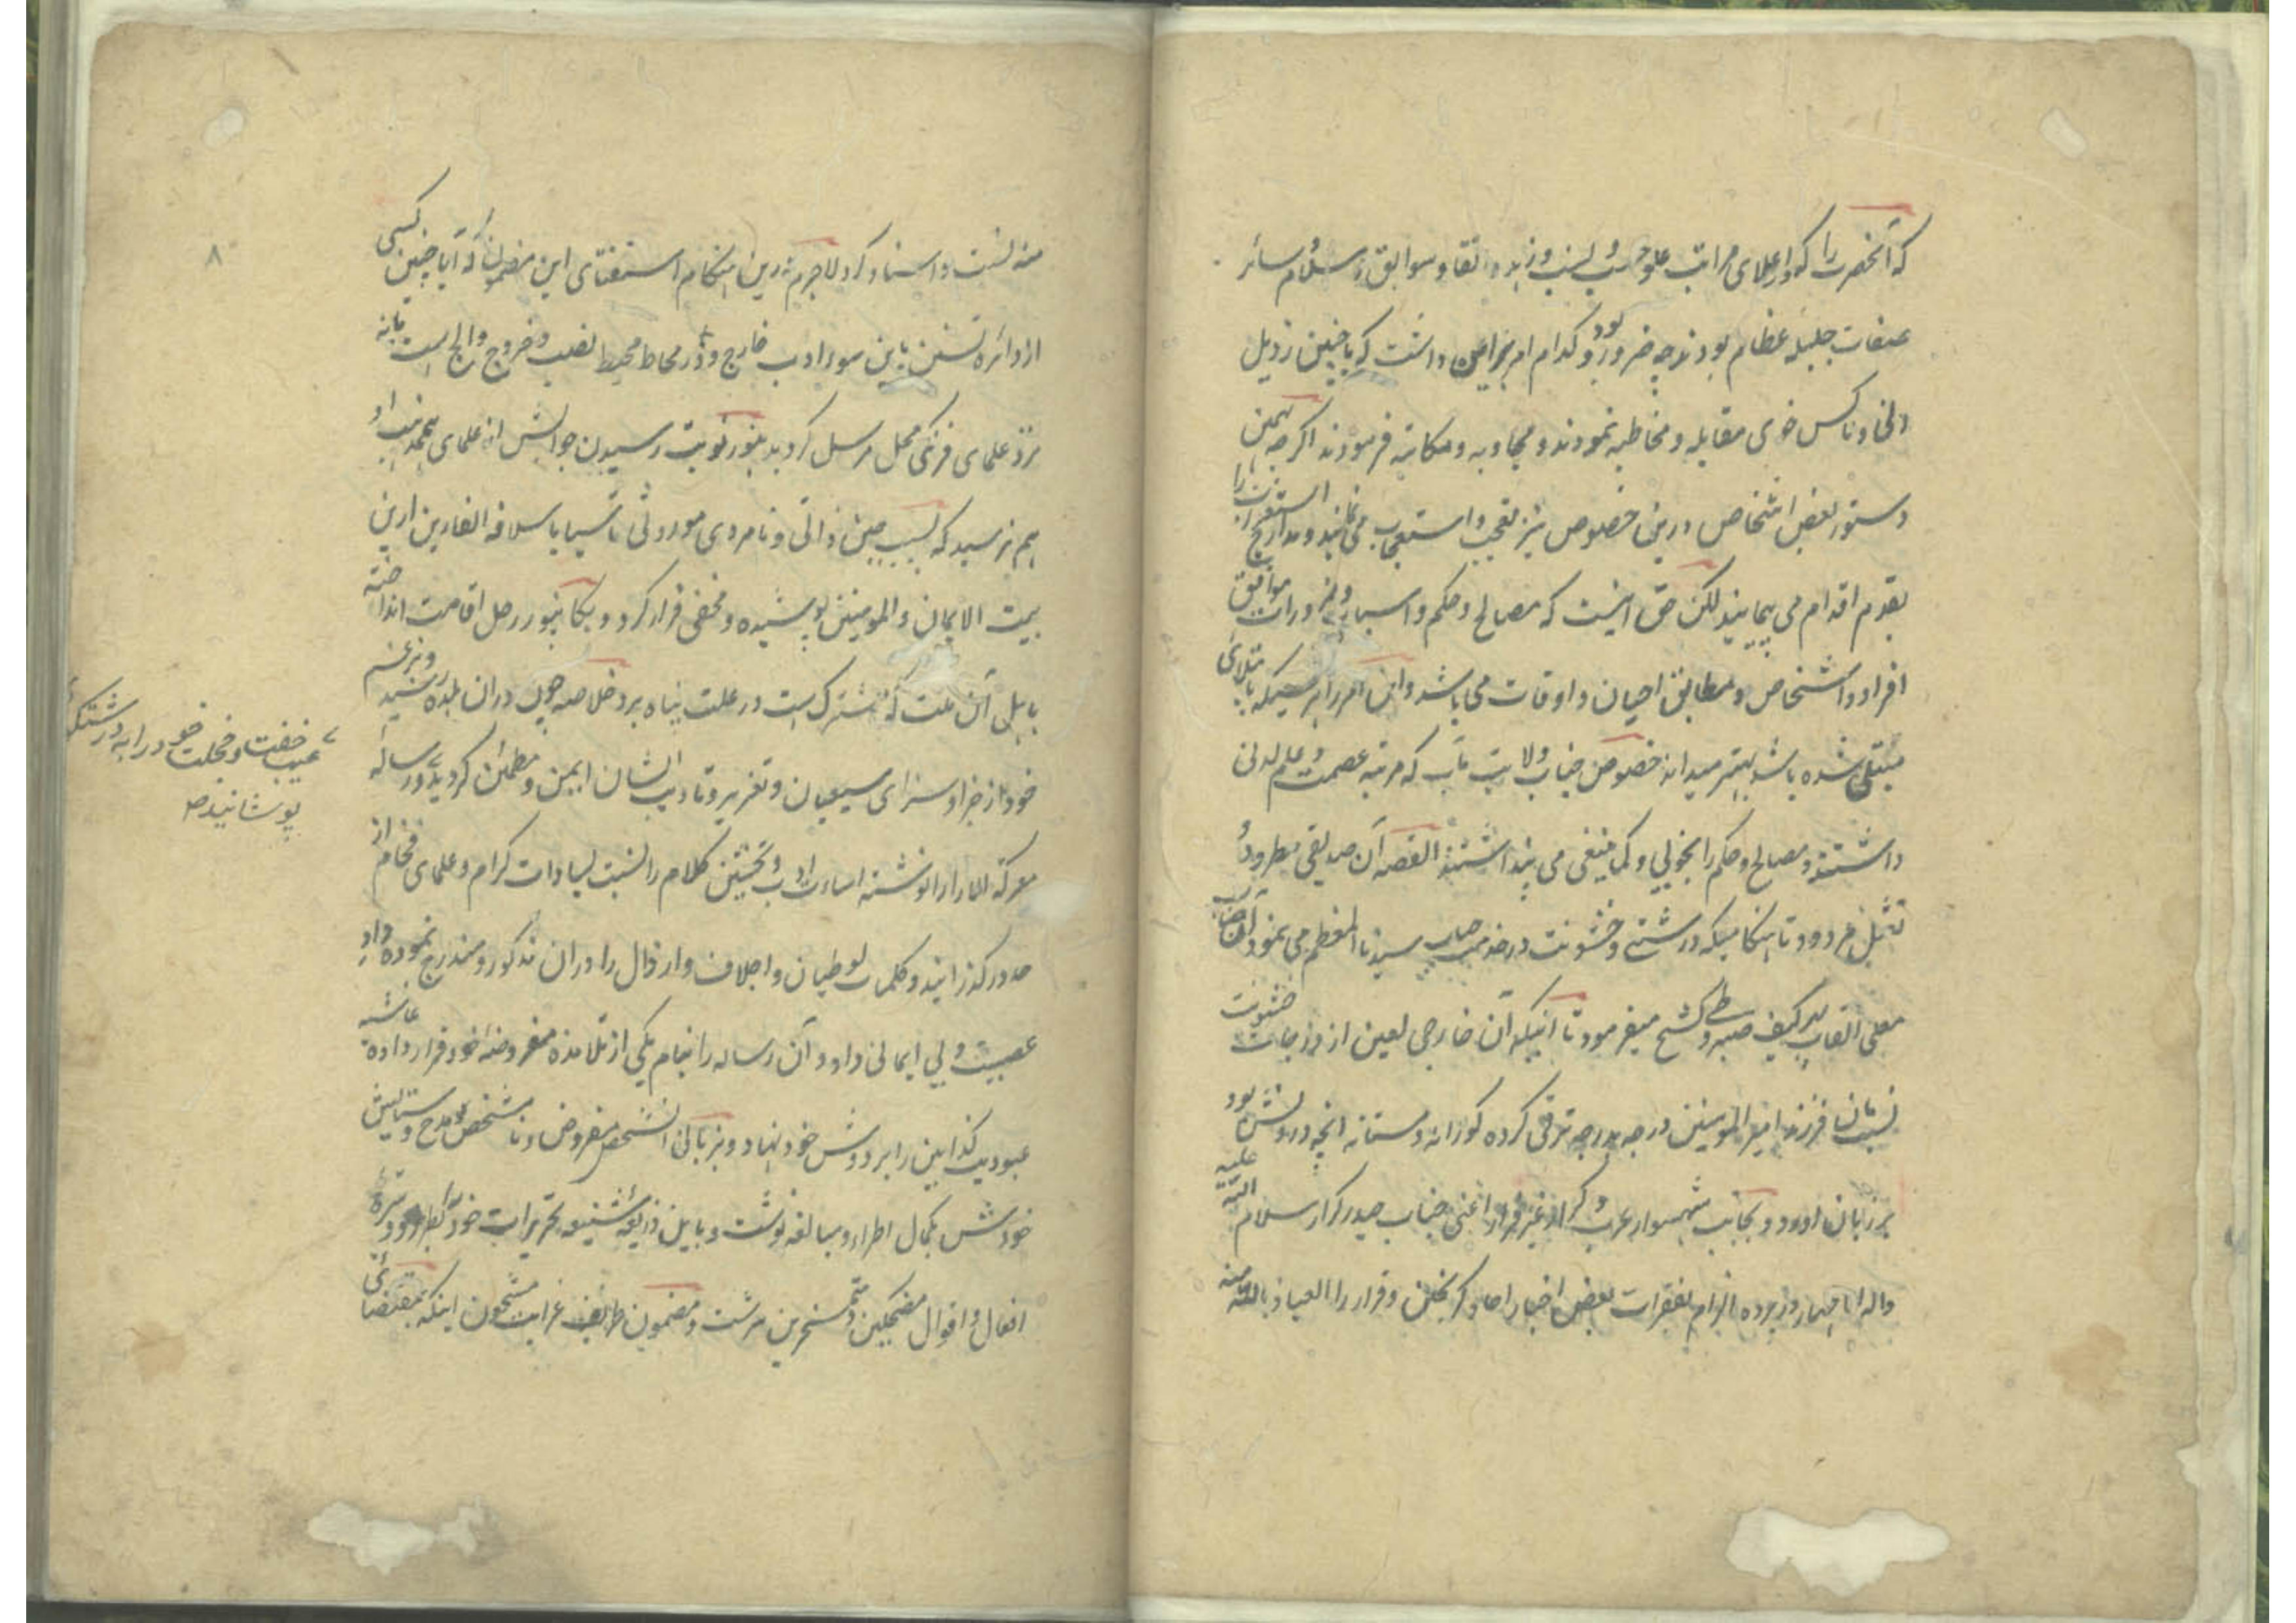 که آنحضرت را که در اعلای مراتب علو حسب و نسب و زهد و اتقا و سوابق اسلام سائر
صفات جلیله عظام بودند چه ضرور بود و کدام امر بر این داشت که با چنین رذیل
دنی و ناکس خوی مقابله و مخاطبه نمودند و مجاوبه و مکاتبه فرمودند اگرچه بهمین
دستور بعض اشخاص درین خصوص نیز تعجب و استعجاب می نمایند و مدارج استغراب را
بقدم اقدام می پیمایند لکن حق اینست که مصالح و حکم و اسباب و ضرورات موافق
افراد و اشخاص و مطابق احیان و اوقات می باشد و این امر را هر کسیکه بابتلائی
مبتلی شده باشد بهتر میداند خصوص جناب ولایت مآب که مرتبه عصمت و علم لدنی
داشتند و مصالح و حکم را بخوبی و کما ینبغی می پنداشتند القصه آن صدیقی مطرود و
تیمی مردود تا هنگامیکه درشتی و خشونت در خدمت جناب سیدنا المعظم می نمود آن جناب
معلی القاب بهر کیف صبر و طی کشح میفرمود تا اینکه آن خارجی لعین از درجات خشونت
نسبت بآن فرزند امیر المومنین درجه بدرجه ترقی کرده کورانه و مستانه انچه در دلش بود
بر زبان آورد و بجانب شهسوار عرب و کرار غیر فرار اعنی جناب حیدر کرار سلام الله علیه
و اله الاطهار روز برده الزام بفقرات بعض اخبار احاد کرده بخل و فرار را العیاذ بالله منه
منه نسبت و اسناد کرد لاجرم درین هنگام استفتای این مضمون که آیا چنین کسی
از دائره تسنن باین سوء ادب خارج و در محاط محیط نصب و خروج والج است یا نه
نزد علمای فرنگی محل مرسل کردید هنوز نوبت رسیدن جوابش از علمای هم مذهب او
هم نرسید که بسبب جبن ذاتی و نامردی موروثی تاسیا باسلافه الفارین ازین
بیت الایمان والمومنین پوشیده و مخفی فرار کرد و بکانپور رحل اقامت انداخته
باهل آن ملت که مشترک است در علت پناه برد خلاصه چون دران بلده رسید و بزعم
خود از جزا و سزای شیعیان و تعزیر و تادیب ایشان ایمن و مطمئن کردید رساله
معرکة الارا را نوشته اساءت ادب و تخشین کلام را نسبت بسادات کرام و علمای فخام از
حد در گذرانید و کلمات لوطیان و اجلاف و ارذال را دران مذکور و مندرج نموده داد
عصبیت و بی ایمانی داد و آن رساله را بنام یکی از تلامذه مفروضه خود قرار داده غاشیه
عبودیت کذابین را بر دوش خود نهاد و بزبان انشخص مفروض و نا مشخص مدح و ستایش
خودش بکمال اطراء و مبالغه نوشت
افعال و اقوال مضحکین و متمسخرین سرشت و مضمون ظرایف غرایب مشحون اینکه بمقتضای
۸
عیب خفت و خجلت خود را به درشتگی
پوشانیده